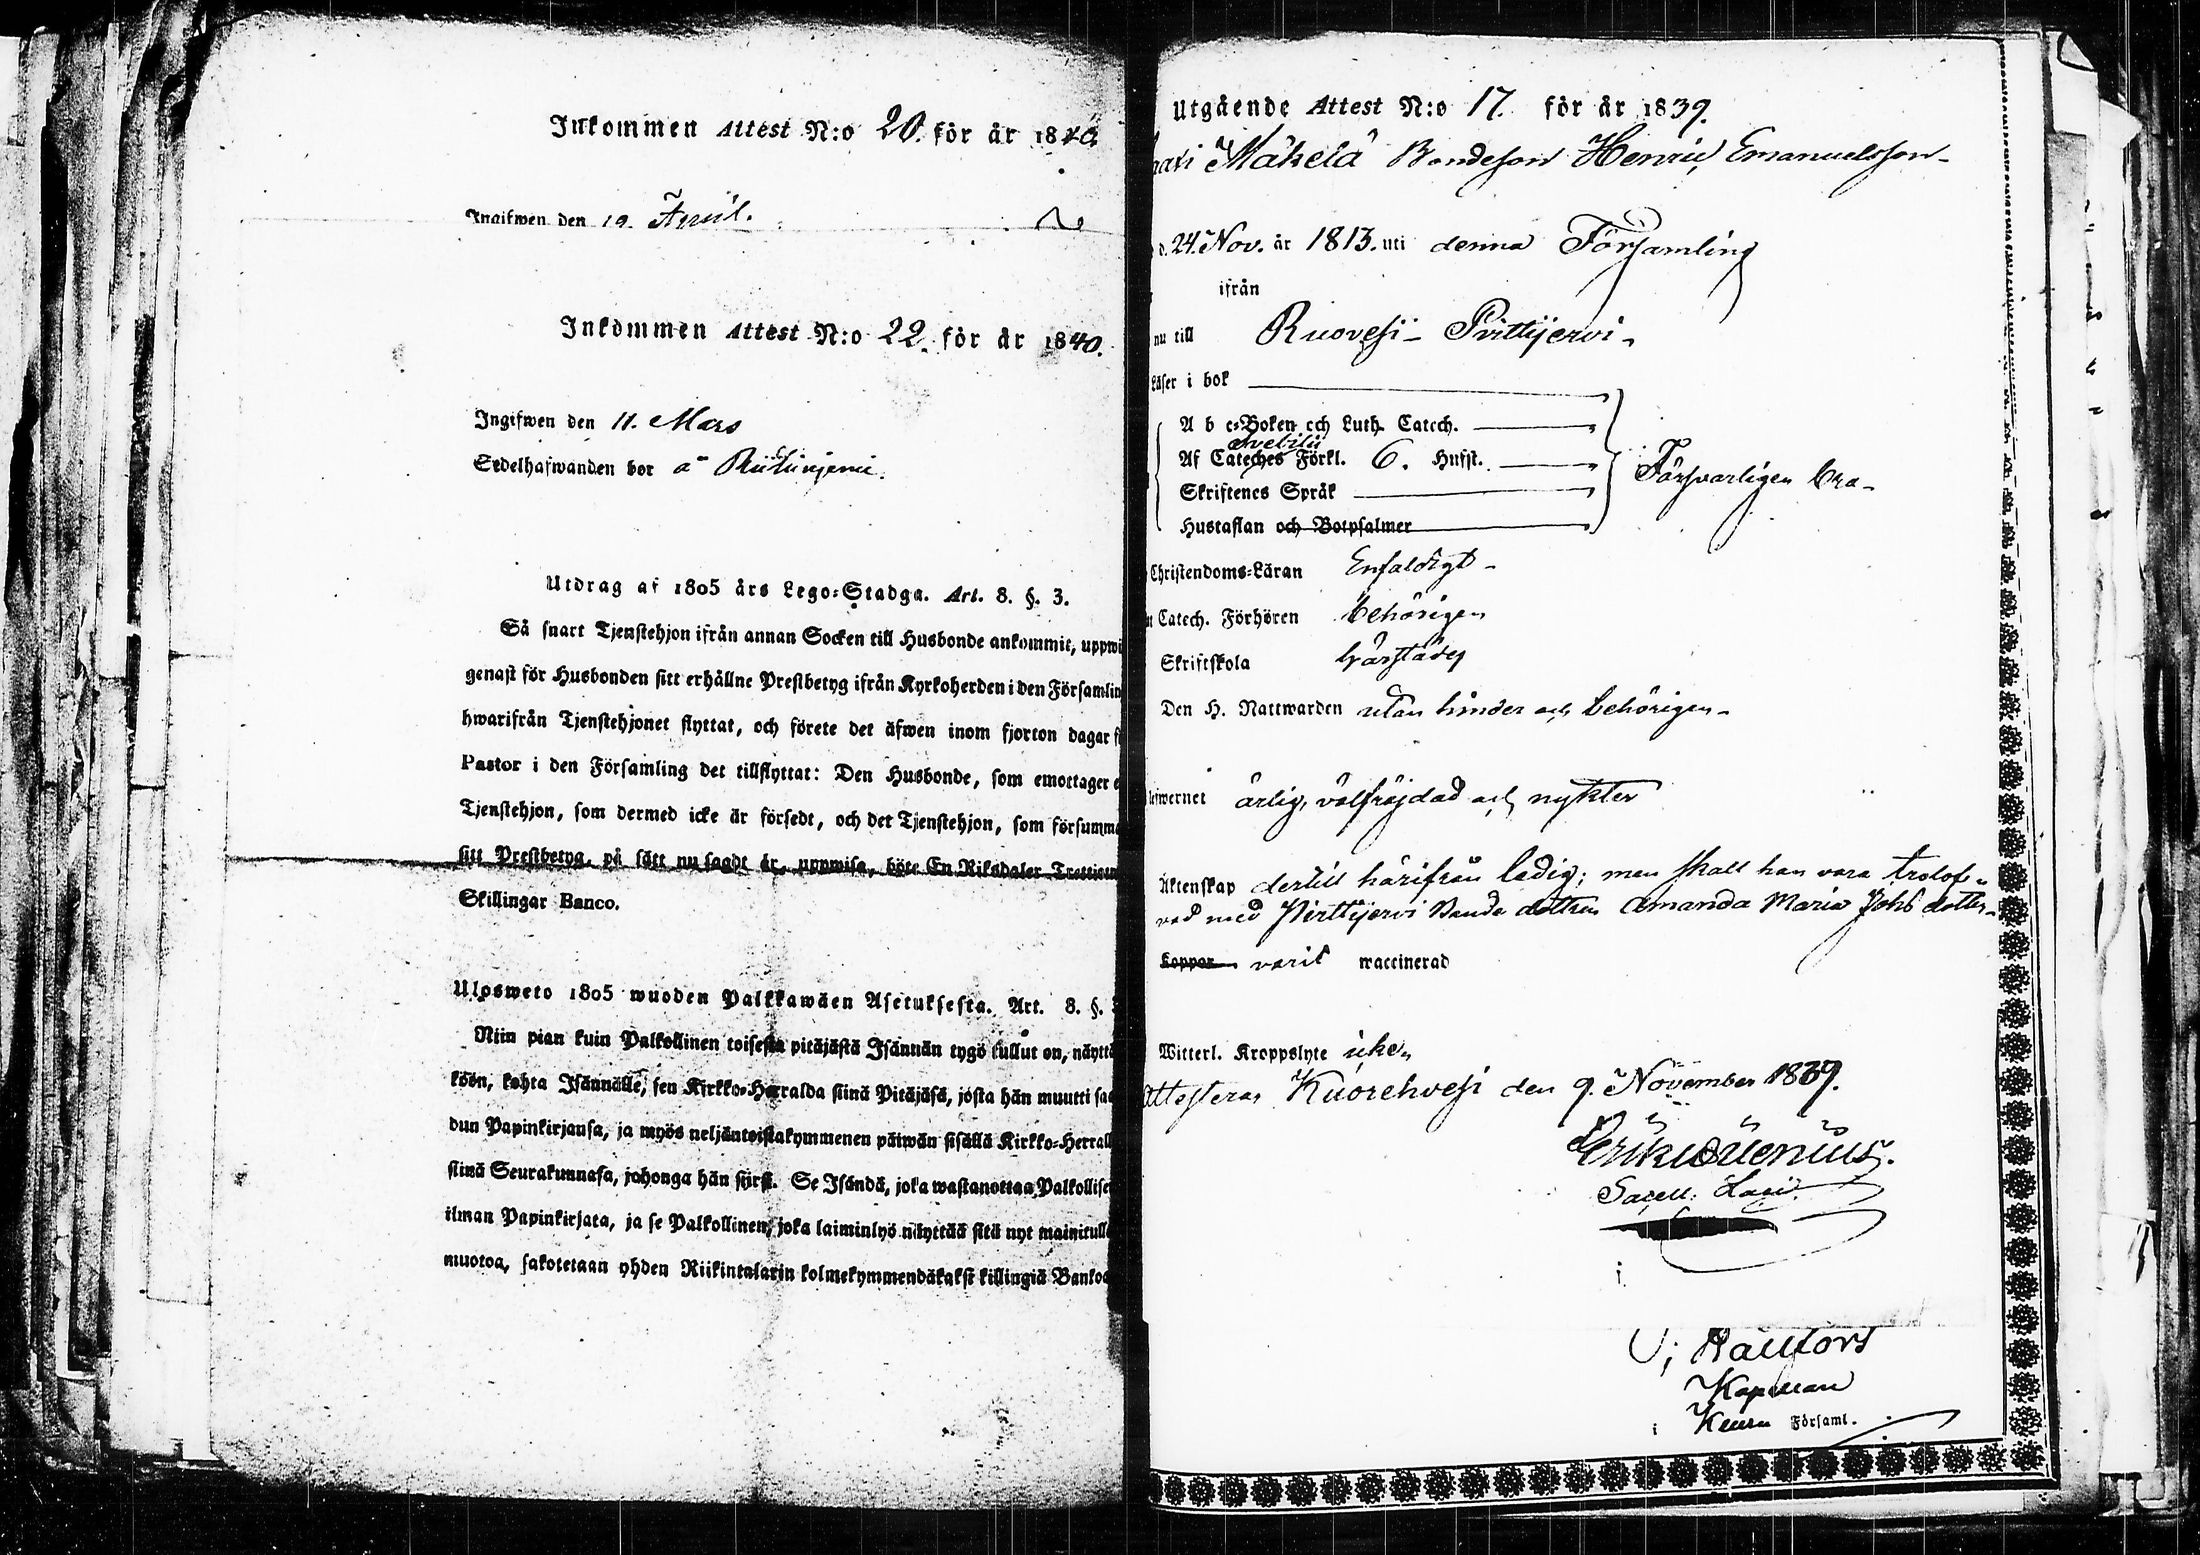 Inkommen Attest N:o 20. för år 1840.
Ingifwen den 19. April.
Inkommen Attest N:o 22. för år 1840.
Ingifwen den 11. Mars
Sedelhafwanden bor å
Utdrag af 1805 års Lego-Stadga. Art. 8. §. 3.
Så snart Tjenstehjon ifrån annan Socken till Husbonde ankommit, uppwi
genast för Husbonden sitt erhållne Prestbetyg ifrån Kyrkoherden i den Församlin
hwarifrån Tjenstehjonet flyttat, och förete det äfwen inom fjorton dagar f
Pastor i den Församling det tillflyttat: Den Husbonde, som emottager e
Tjenstehjon, som dermed icke är försedt, och det Tjenstehjon, som försumma
sitt Prestbetyg, på sätt nu sagdt är, uppwisa, böte En Riksdaler Trettietwå
Skillingar Banco.
Ulosweto 1805 wuoden Palkkawäen Asetuksesta. Art. 8. §. 3
Niin pian kuin Palkollinen toisesta pitäjästä Isännän tygö tullut on, näyttä
köön, kohta Isännälle, sen Kirkko-Herralda siinä Pitäjäsä, josta hän muutti saa
dun Papinkirjansa, ja myös neljäntoistakymmenen päiwän sisällä Kirkko-Herrall
siinä Seurakunnasa, johonga hän siirsi. Se Isändä, joka wastanottaa Palkollise
ilman Papinkirjata, ja se Palkollinen, joka laiminlyö näyttää sitä nyt mainitulla
muotoa, sakotetaan yhden Riikintalarin kolmekymmendäkaksi killingiä Bankoa
Utgående Attest N:o 17. för år 1839.
Mäkelä Bondeson Henric Emanuelsson
d. 24. Nov. år 1813. uti denna Församling
ifrån
nu till Ruovesi - Pirttijerwi
Läser i bok
A b c-Boken och Luth. Catech.
Svebilii
Af Cateches Förkl. 6. Hufst.
Skriftenes Språk
Hustaflan och Botpsalmer
Försvarligen bra
Christendoms-Läran Enfaldigt
Catech. Förhören behörigen
Skriftskola bärstädes
Den H. Nattwarden utan hinder och behörigen
lefwernet ärlig, välfräjdad och nykter
Äktenskap dertill härifrån ledig; men skall han vara trolof-
vad med Pirttijerwi Bonde dottren Amanda Maria Johs dotter
Koppor varit waccinerad
Witterl. Kroppslyte icke
Attesterar Kuorehvesi den 9. November 1839.
Sacell.
Kapellan
i Keuru Församl.